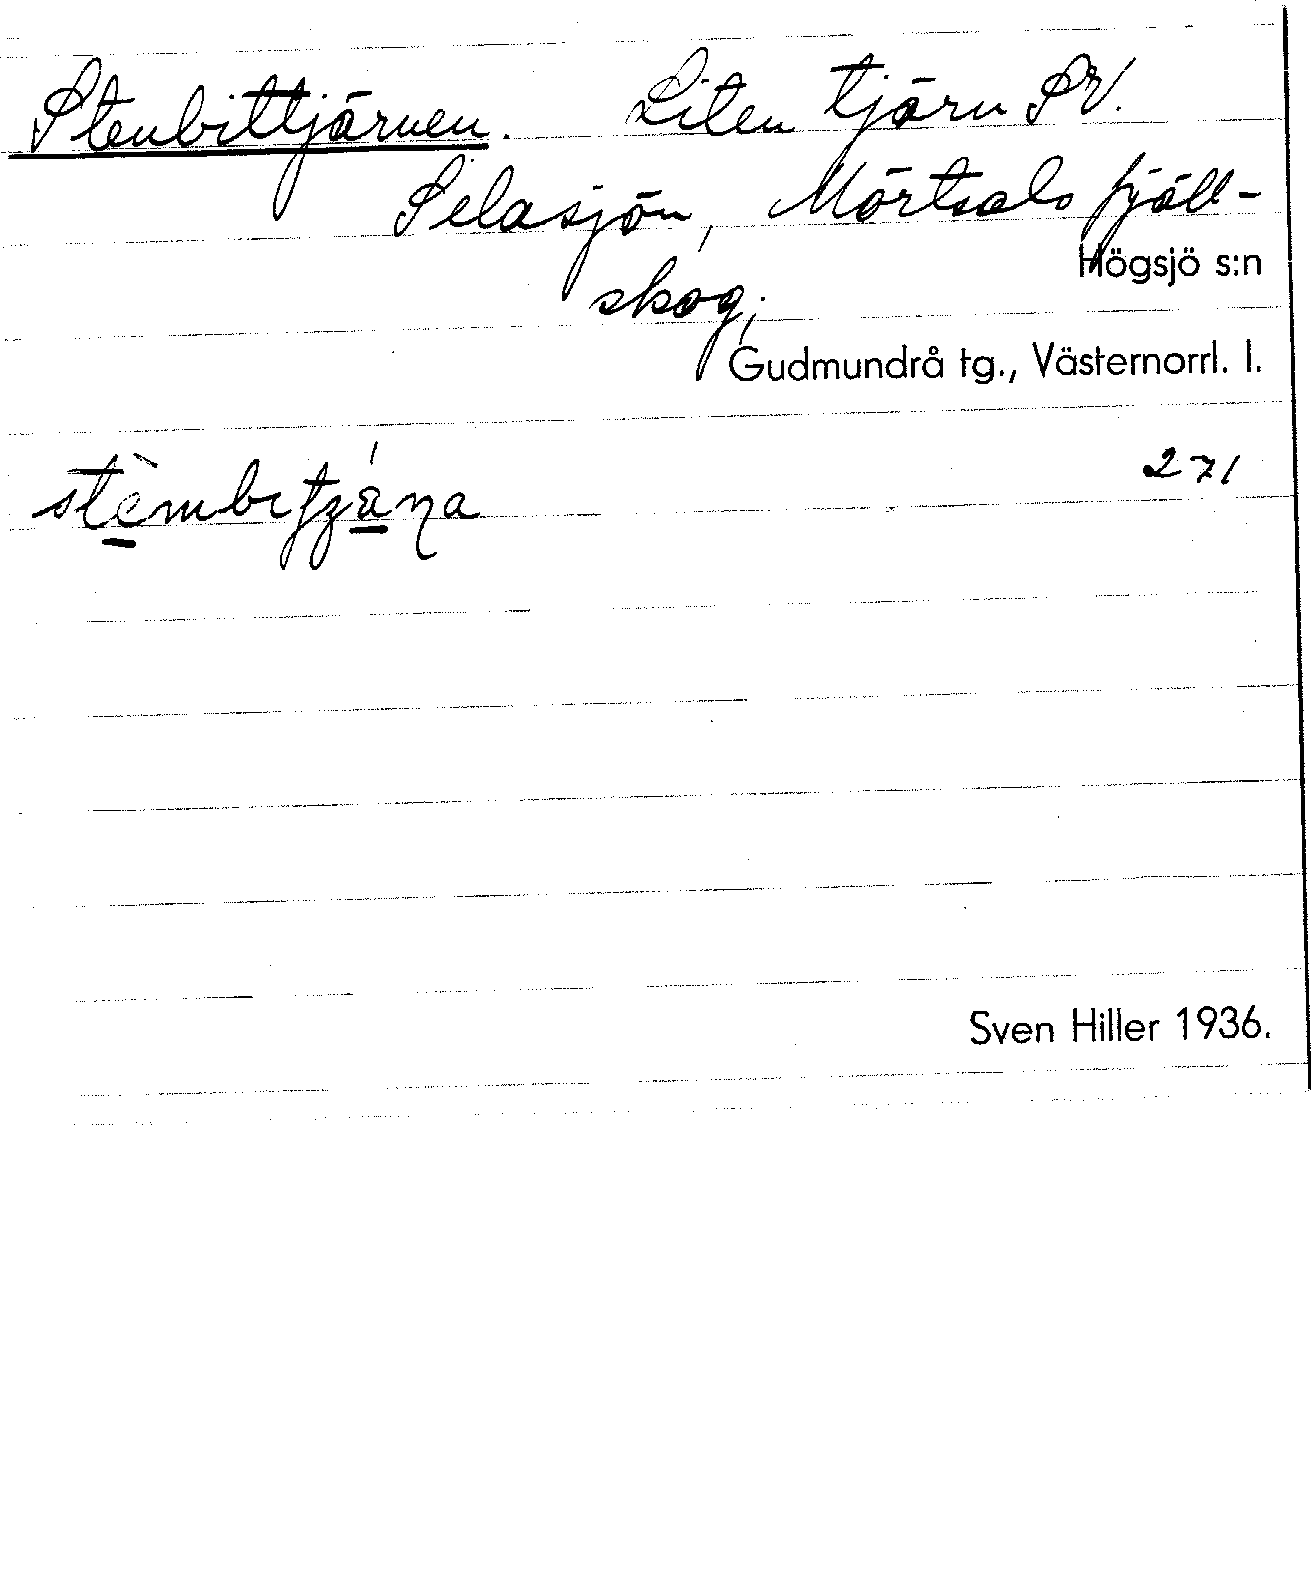 Stenbittjärnen. Liten tjärn SV.
Selasjön, Mörtsals fjäll-
skog;
Högsjö s:n
Gudmundrå tg., Västernorrl. l.
271
Sven Hiller 1936.